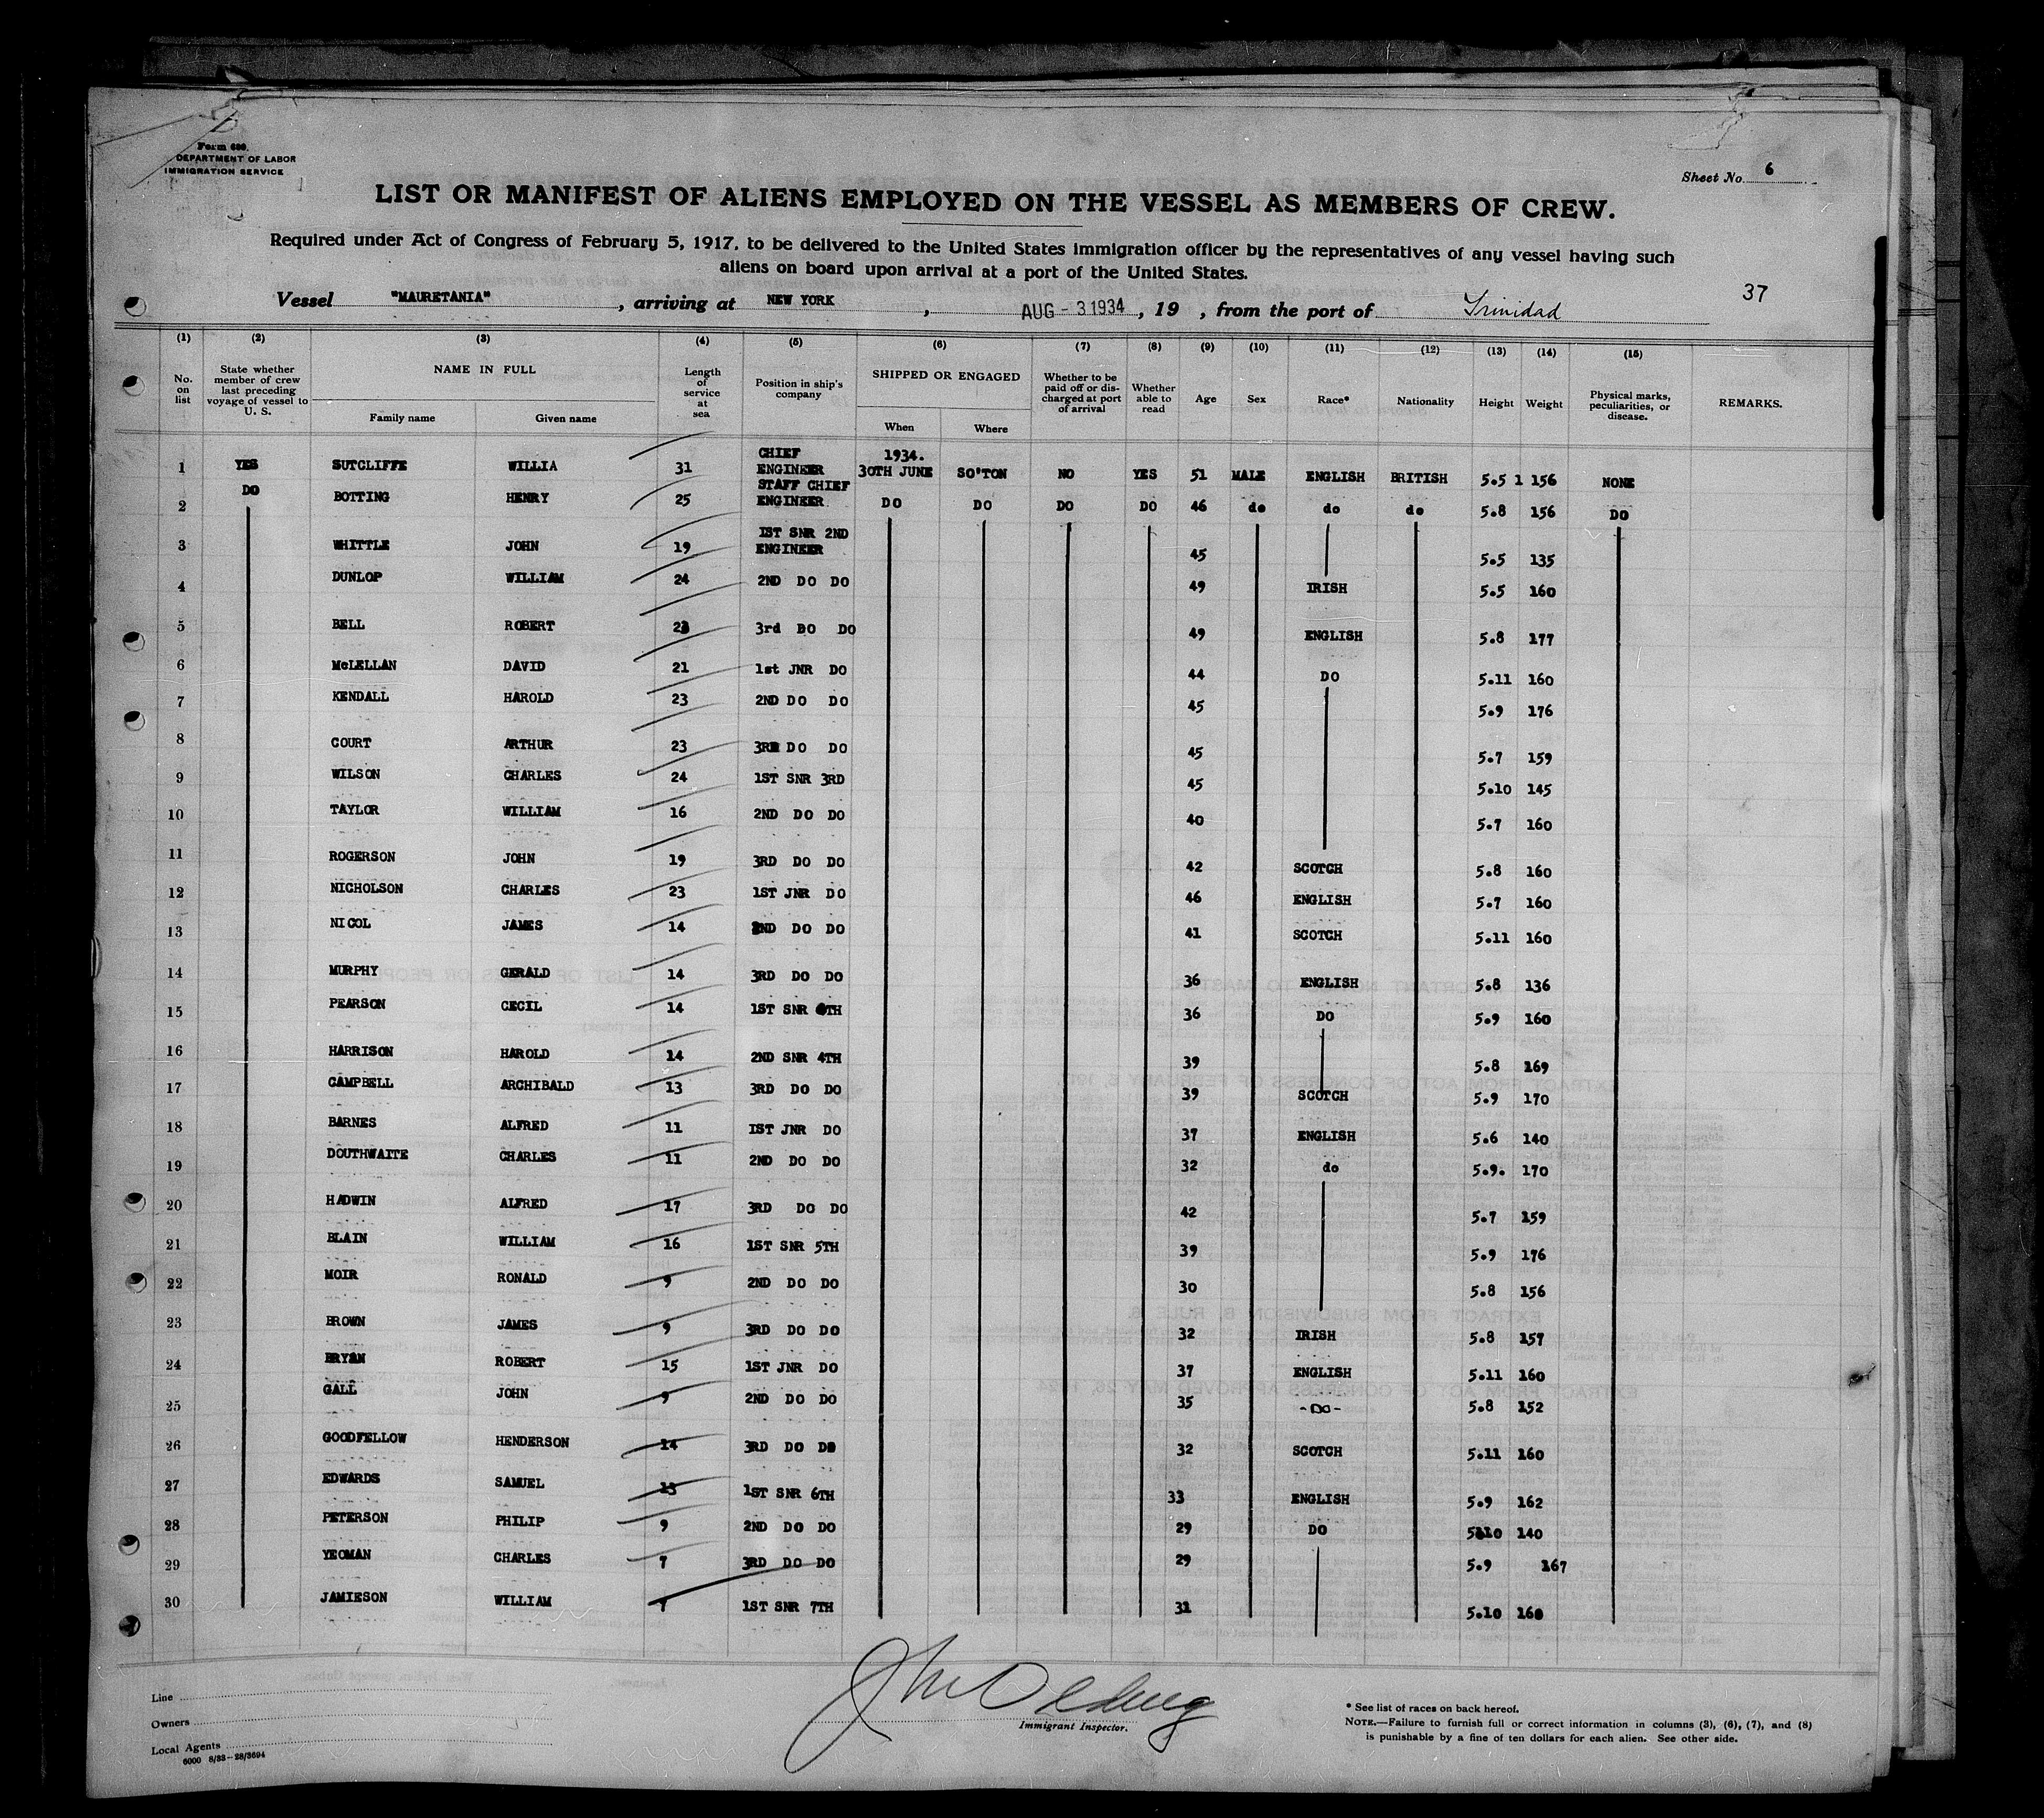 Form 680.
DEPARTMENT OF LABOR
IMMIGRATION SERVICE
Sheet No. 6
LIST OR MANIFEST OF ALIENS EMPLOYED ON THE VESSEL AS MEMBERS OF CREW.
Required under Act of Congress of February 5, 1917, to be delivered to the United States immigration officer by the representatives of any vessel having such
aliens on board upon arrival at a port of the United States.
37
Vessel "MAURETANIA", arriving at NEW YORK, AUG - 3 1934, 19 , from the port of Trinidad
(1) (2) (3) (4) (5) (6) (7) (8) (9) (10) (11) (12) (13) (14) (15)
No. on list State whether member of crew last preceding voyage of vessel to U. S. NAME IN FULL Family name Given name Length of service at sea Position in ship's company SHIPPED OR ENGAGED When Where Whether to be paid off or discharged at port of arrival Whether able to read Age Sex Race* Nationality Height Weight Physical marks, peculiarities, or disease. REMARKS.
1 YES SUTCLIFFE WILLIA 31 CHIEF ENGINEER 1934. 30TH JUNE SO'TON NO YES 51 MALE ENGLISH BRITISH 5.5 1 156 NONE
2 DO BOTTING HENRY 25 STAFF CHIEF ENGINEER DO DO DO DO 46 do do do 5.8 156 DO
3 WHITTLE JOHN 19 1ST SNR 2ND ENGINEER 45 5.5 135
4 DUNLOP WILLIAM 24 2ND DO DO 49 IRISH 5.5 160
5 BELL ROBERT 3rd DO DO 49 ENGLISH 5.8 177
6 McLELLAN DAVID 21 1st JNR DO 44 DO 5.11 160
7 KENDALL HAROLD 23 2ND DO DO 45 5.9 176
8 COURT ARTHUR 23 3RD DO DO 45 5.7 159
9 WILSON CHARLES 24 1ST SNR 3RD 45 5.10 145
10 TAYLOR WILLIAM 16 2ND DO DO 40 5.7 160
11 ROGERSON JOHN 19 3RD DO DO 42 SCOTCH 5.8 160
12 NICHOLSON CHARLES 23 1ST JNR DO 46 ENGLISH 5.7 160
13 NICOL JAMES 14 2ND DO DO 41 SCOTCH 5.11 160
14 MURPHY GERALD 14 3RD DO DO 36 ENGLISH 5.8 136
15 PEARSON CECIL 14 1ST SNR 4TH 36 DO 5.9 160
16 HARRISON HAROLD 14 2ND SNR 4TH 39 5.8 169
17 CAMPBELL ARCHIBALD 13 3RD DO DO 39 SCOTCH 5.9 170
18 BARNES ALFRED 11 1ST JNR DO 37 ENGLISH 5.6 140
19 DOUTHWAITE CHARLES 11 2ND DO DO 32 do 5.9. 170
20 HADWIN ALFRED 17 3RD DO DO 42 5.7 159
21 BLAIN WILLIAM 16 1ST SNR 5TH 39 5.9 176
22 MOIR RONALD 9 2ND DO DO 30 5.8 156
23 BROWN JAMES 9 3RD DO DO 32 IRISH 5.8 157
24 BRYAN ROBERT 15 1ST JNR DO 37 ENGLISH 5.11 160
25 GALL JOHN 9 2ND DO DO 35 -DO- 5.8 152
26 GOODFELLOW HENDERSON 14 3RD DO DO 32 SCOTCH 5.11 160
27 EDWARDS SAMUEL 13 1ST SNR 6TH 33 ENGLISH 5.9 162
28 PETERSON PHILIP 9 2ND DO DO 29 DO 5.10 140
29 YEOMAN CHARLES 7 3RD DO DO 29 5.9 167
30 JAMIESON WILLIAM 7 1ST SNR 7TH 31 5.10 160
Line
Owners
Local Agents
6000 8/33-28/3694
Immigrant Inspector.
* See list of races on back hereof.
NOTE.—Failure to furnish full or correct information in columns (3), (6), (7), and (8)
is punishable by a fine of ten dollars for each alien. See other side.